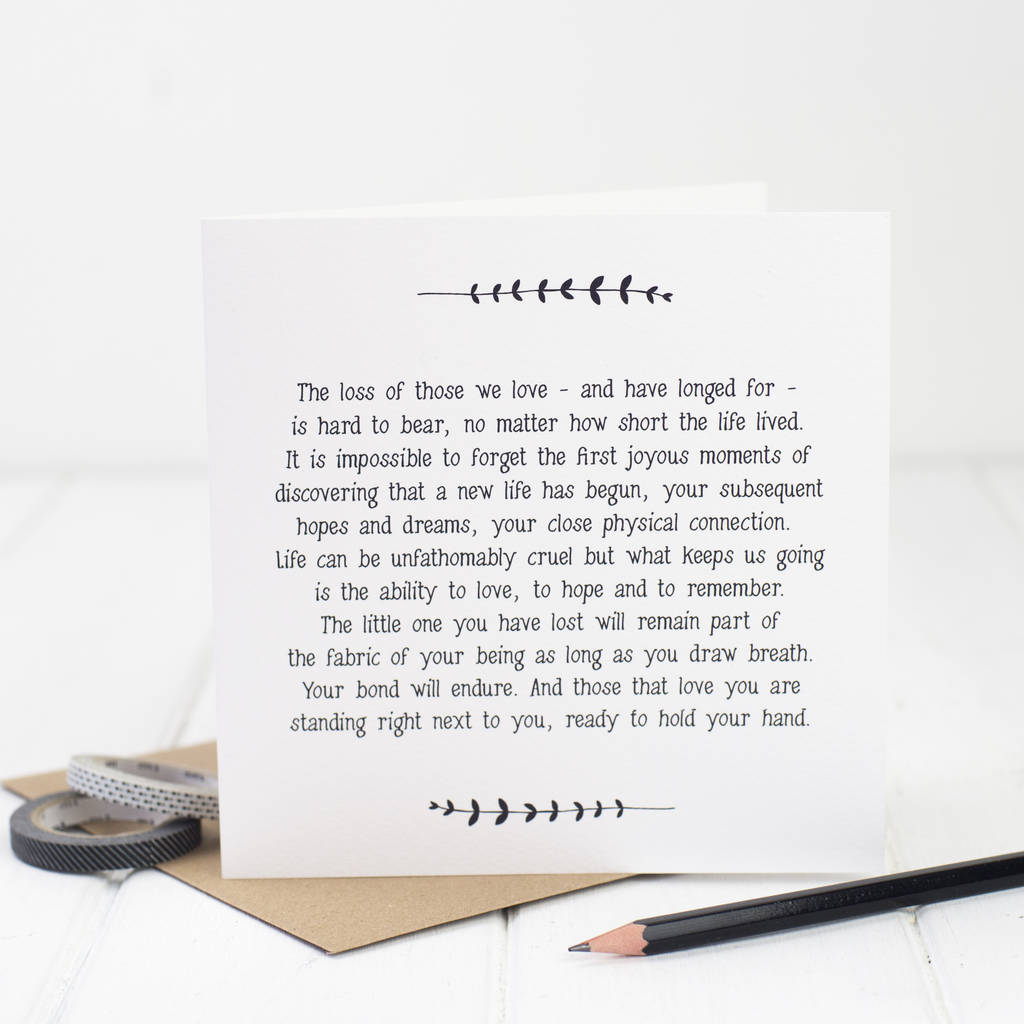 The loss of those we love - and have longed for -
is hard to bear, no matter how short the life lived.
It is impossible to forget the first joyous moments of
discovering that a new life has begun, your subsequent
hopes and dreams, your close physical connection.
Life can be unfathomably cruel but what keeps us going
is the ability to love, to hope and to remember.
The little one you have lost will remain part of
the fabric of your being as long as you draw breath.
Your bond will endure. And those that love you are
standing right next to you, ready to hold your hand.